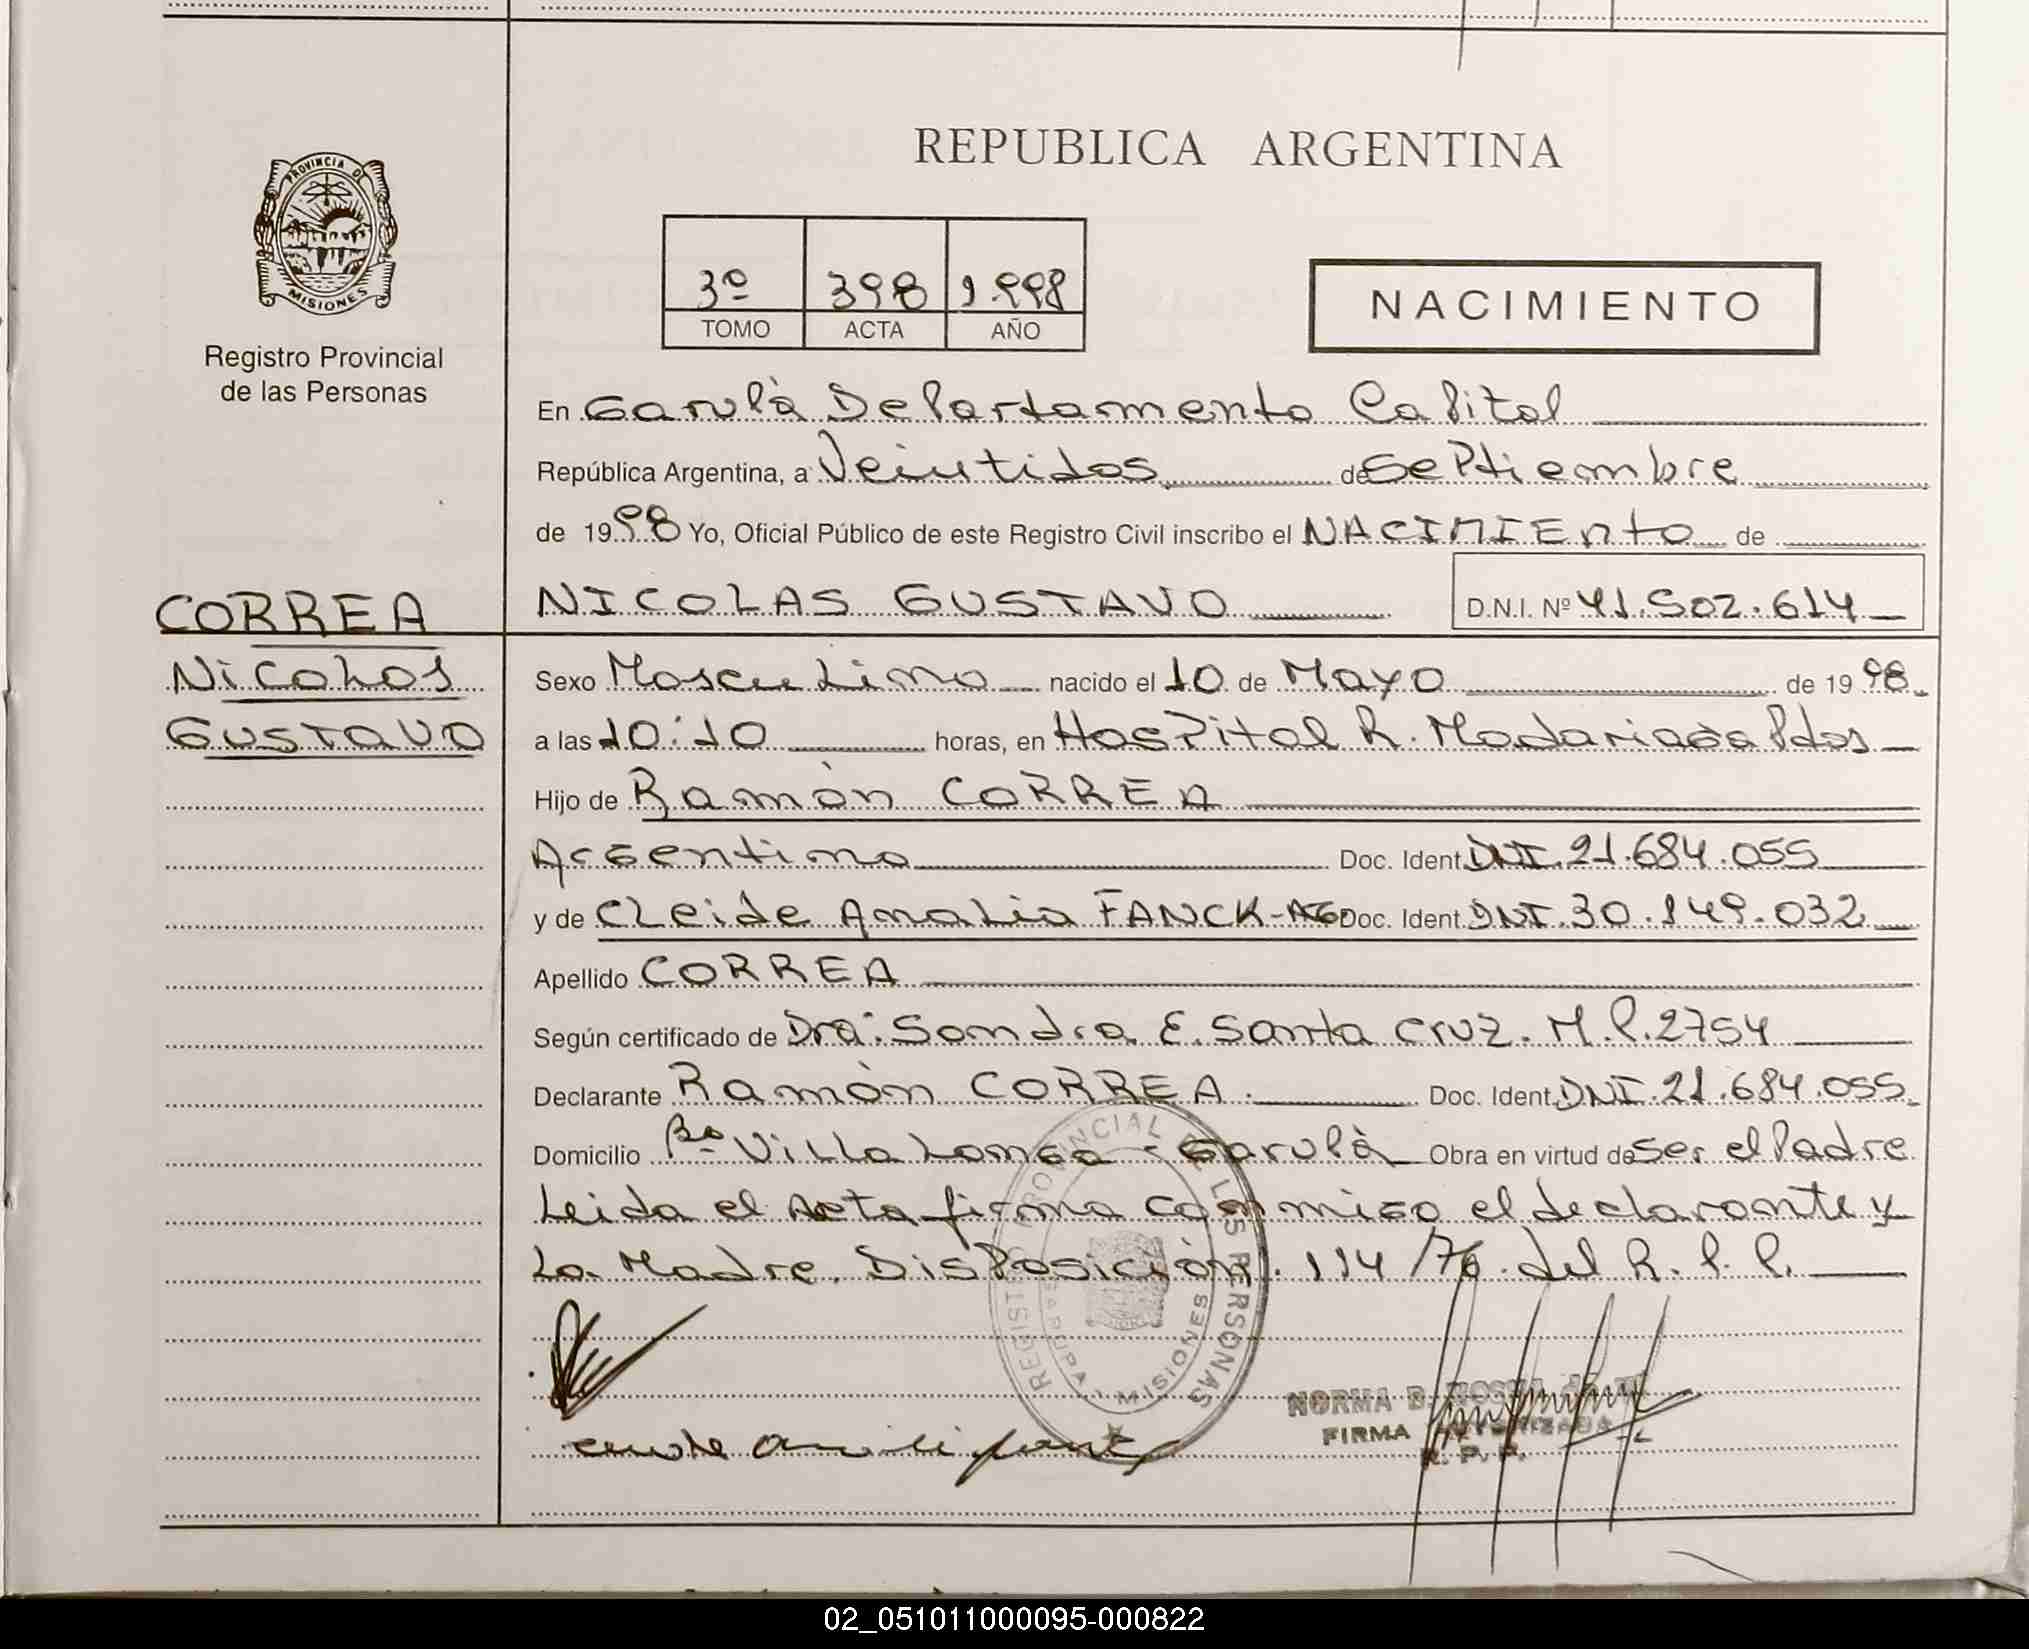 REPUBLICA ARGENTINA
PROVINCIA DE
MISIONES
Registro Provincial
de las Personas
3º 398 1.998
TOMO ACTA AÑO
NACIMIENTO
En Garupà Departamento Capital
República Argentina, a Veintidos de Septiembre
de 1998 Yo, Oficial Público de este Registro Civil inscribo el NACIMIENTO de
CORREA
NICOLAS GUSTAVO D.N.I. Nº 41.502.614
Nicolas
Sexo Masculino nacido el 10 de Mayo de 1998
GUSTAVO
a las 10:10 horas, en Hospital R. Madariaga Pdas
Hijo de Ramòn CORREA
Argentino Doc. Ident. DNI. 21.684.055
y de Cleide Amalia FANCK-AG Doc. Ident. DNI. 30.149.032
Apellido CORREA
Según certificado de Dra: Sandra E. Santa Cruz. M.P. 2754
Declarante Ramòn CORREA. Doc. Ident. DNI. 21.684.055.
Domicilio Bº Villa Longa - Garupà Obra en virtud de Ser el Padre
Leida el Acta firma conmigo el declarante y
La Madre. Disposiciòn. 114/76 del R.P.P.
REGISTRO PROVINCIAL DE LAS PERSONAS
GARUPA
MISIONES
NORMA B.
FIRMA AUTORIZADA
R. P. P.
02_051011000095-000822